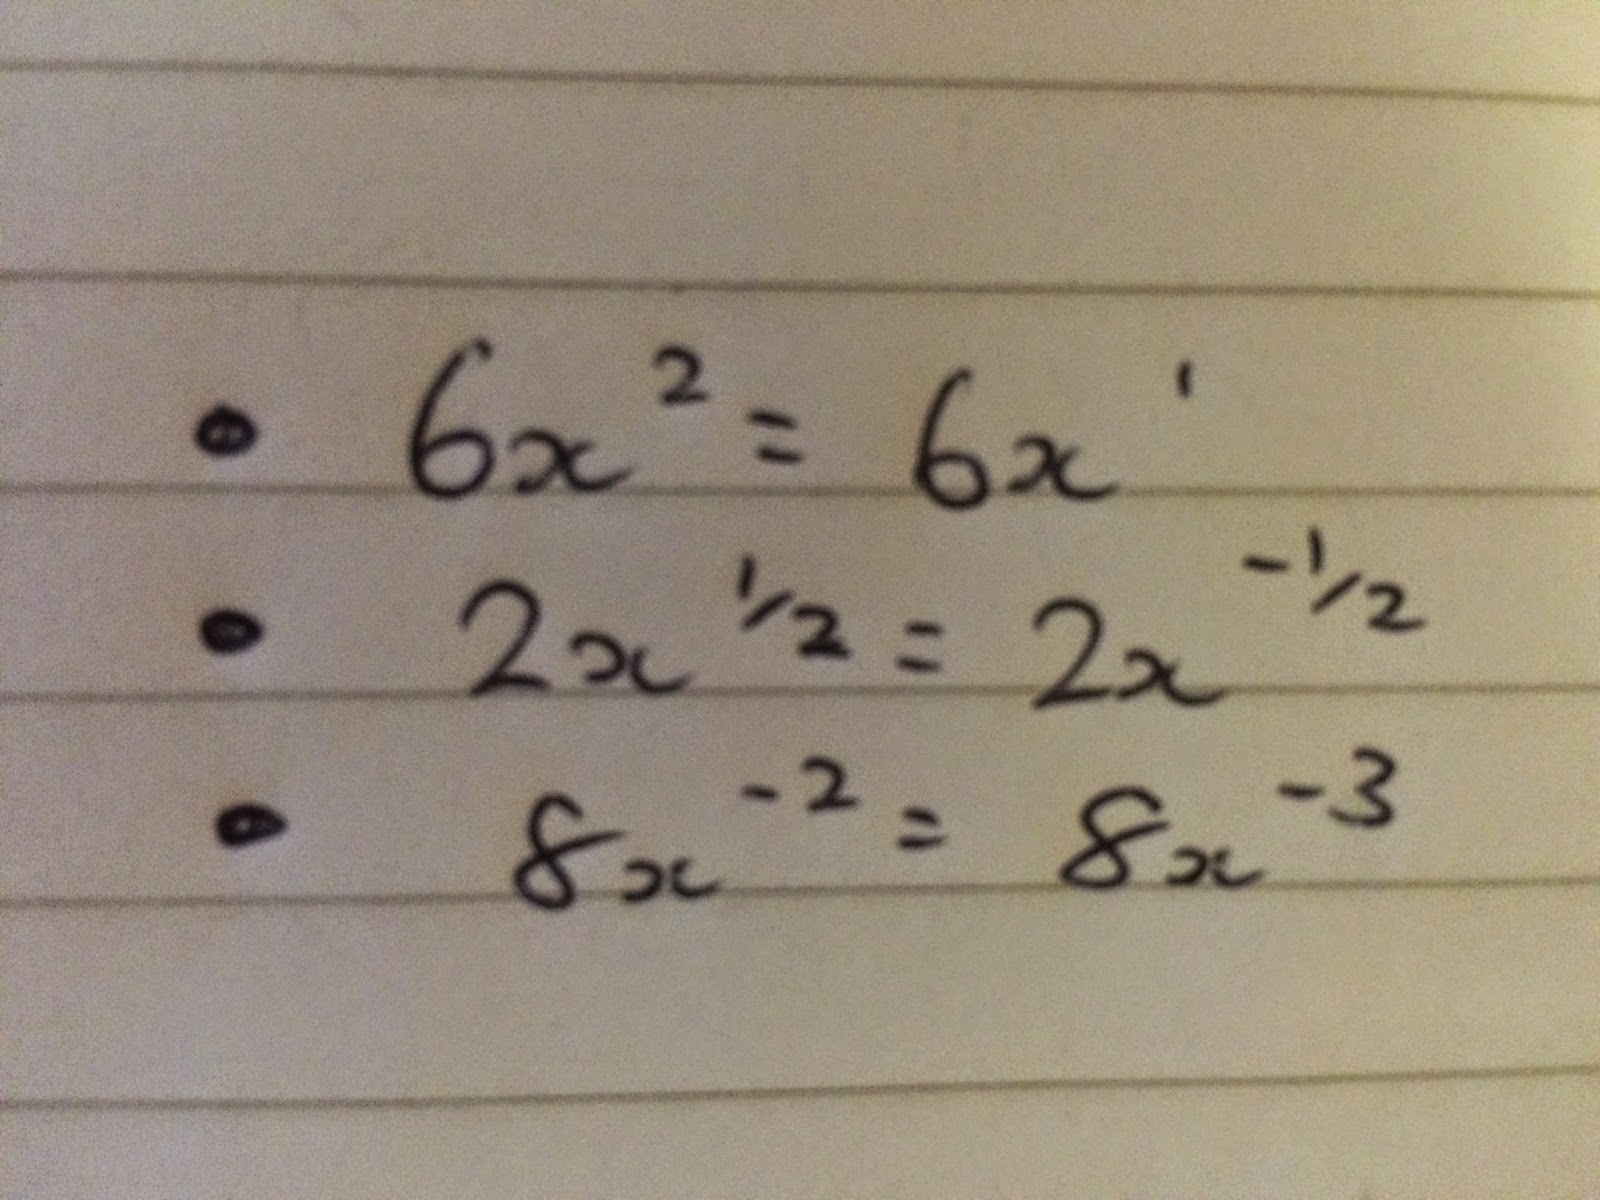 • 6x² = 6x¹
• 2x^1/2 = 2x^-1/2
• 8x^-2 = 8x^-3